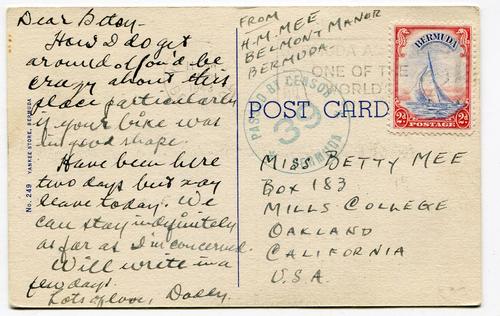 Dear Betsy—
How I do get
around & you'd be
crazy about this
place particularly
if your bike was
in good shape.
Have been here
two days but may
leave today. We
can stay indefinitely
as far as I'm concerned.
Will write in a
few days.
Lots of love, Daddy.
No. 249 YANKEE STORE, BERMUDA
FROM
H.M. MEE
BELMONT MANOR
BERMUDA.
PASSED BY CENSOR
39
BERMUDA
ONE OF THE
WORLD
BERMUDA
2d POSTAGE 2d
POST CARD
MISS BETTY MEE
BOX 183
MILLS COLLEGE
OAKLAND
CALIFORNIA
U.S.A.